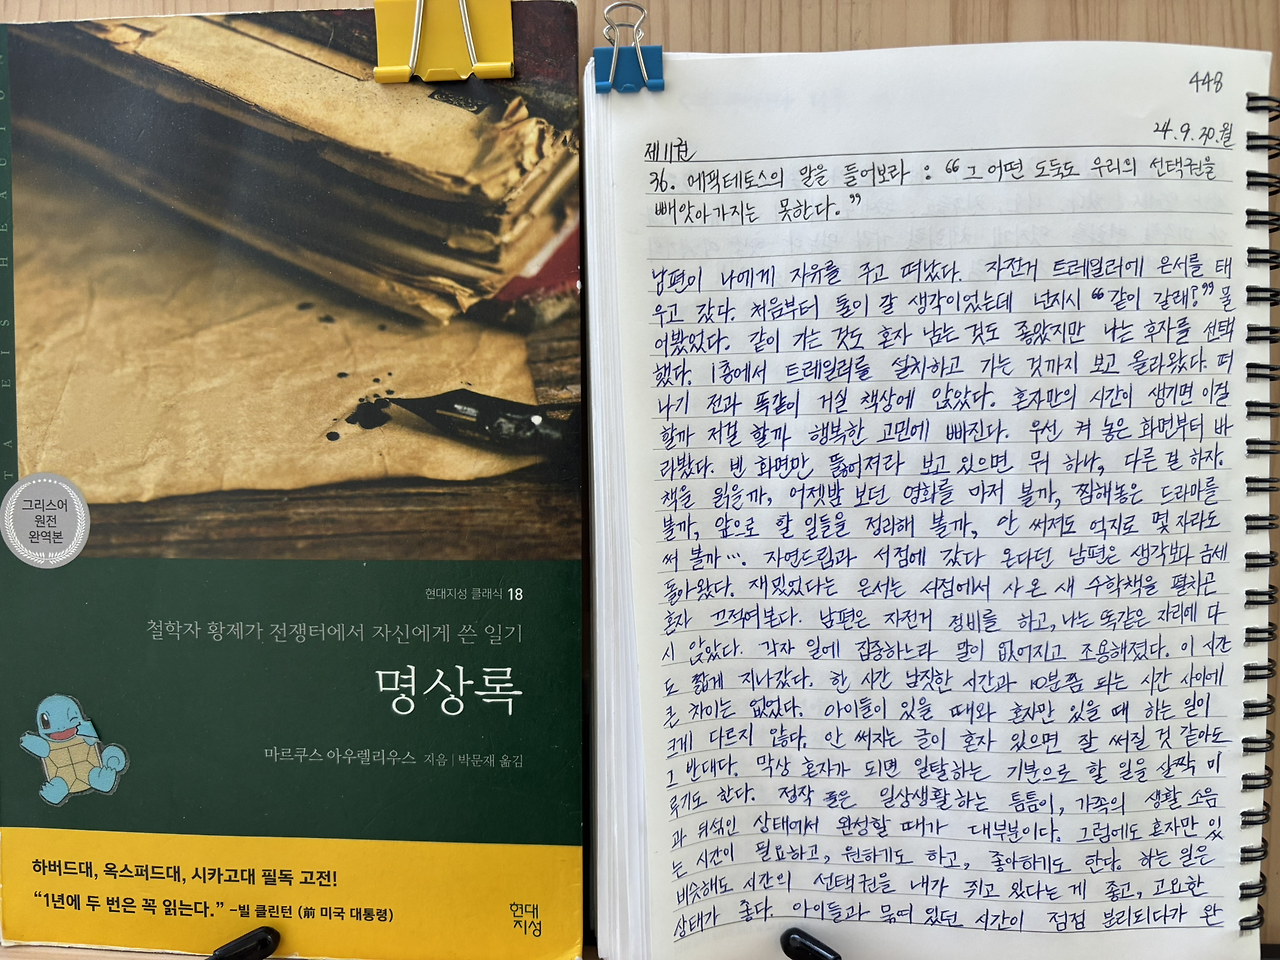 TAEISHEAUTON
그리스어
원전
완역본
현대지성 클래식 18
철학자 황제가 전쟁터에서 자신에게 쓴 일기
명상록
마르쿠스 아우렐리우스 지음 | 박문재 옮김
하버드대, 옥스퍼드대, 시카고대 필독 고전!
“1년에 두 번은 꼭 읽는다.” –빌 클린턴 (前 미국 대통령)
현대
지성
448
24.9.30.월
제11권
36. 에픽테토스의 말을 들어보라 : “그 어떤 도둑도 우리의 선택권을
빼앗아가지는 못한다.”
남편이 나에게 자유를 주고 떠났다. 자전거 트레일러에 은서를 태
우고 갔다. 처음부터 둘이 갈 생각이었는데 넌지시 “같이 갈래?” 물
어봤었다. 같이 가는 것도 혼자 남는 것도 좋았지만 나는 후자를 선택
했다. 1층에서 트레일러를 설치하고 가는 것까지 보고 올라왔다. 떠
나기 전과 똑같이 거실 책상에 앉았다. 혼자만의 시간이 생기면 이걸
할까 저걸 할까 행복한 고민에 빠진다. 우선 켜 놓은 화면부터 바
라봤다. 빈 화면만 뚫어져라 보고 있으면 뭐 하나, 다른 걸 하자.
책을 읽을까, 어젯밤 보던 영화를 마저 볼까, 찜해놓은 드라마를
볼까, 앞으로 할 일들을 정리해 볼까, 안 써져도 억지로 몇 자라도
써 볼까…. 자연드림과 서점에 갔다 온다던 남편은 생각보다 금세
돌아왔다. 재밌었다는 은서는 서점에서 사 온 새 수학책을 펼치고
혼자 끄적여본다. 남편은 자전거 정비를 하고, 나는 똑같은 자리에 다
시 앉았다. 각자 일에 집중하느라 말이 없어지고 조용해졌다. 이 시간
도 짧게 지나갔다. 한 시간 남짓한 시간과 10분쯤 되는 시간 사이에
큰 차이는 없었다. 아이들이 있을 때와 혼자만 있을 때 하는 일이
크게 다르지 않다. 안 써지는 글이 혼자 있으면 잘 써질 것 같아도
그 반대다. 막상 혼자가 되면 일탈하는 기분으로 할 일을 살짝 미
루기도 한다. 정작 글은 일상생활하는 틈틈이, 가족의 생활 소음
과 뒤섞인 상태에서 완성할 때가 대부분이다. 그럼에도 혼자만 있
는 시간이 필요하고, 원하기도 하고, 좋아하기도 한다. 하는 일은
비슷해도 시간의 선택권을 내가 쥐고 있다는 게 좋고, 고요한
상태가 좋다. 아이들과 묶여 있던 시간이 점점 분리되다가 완